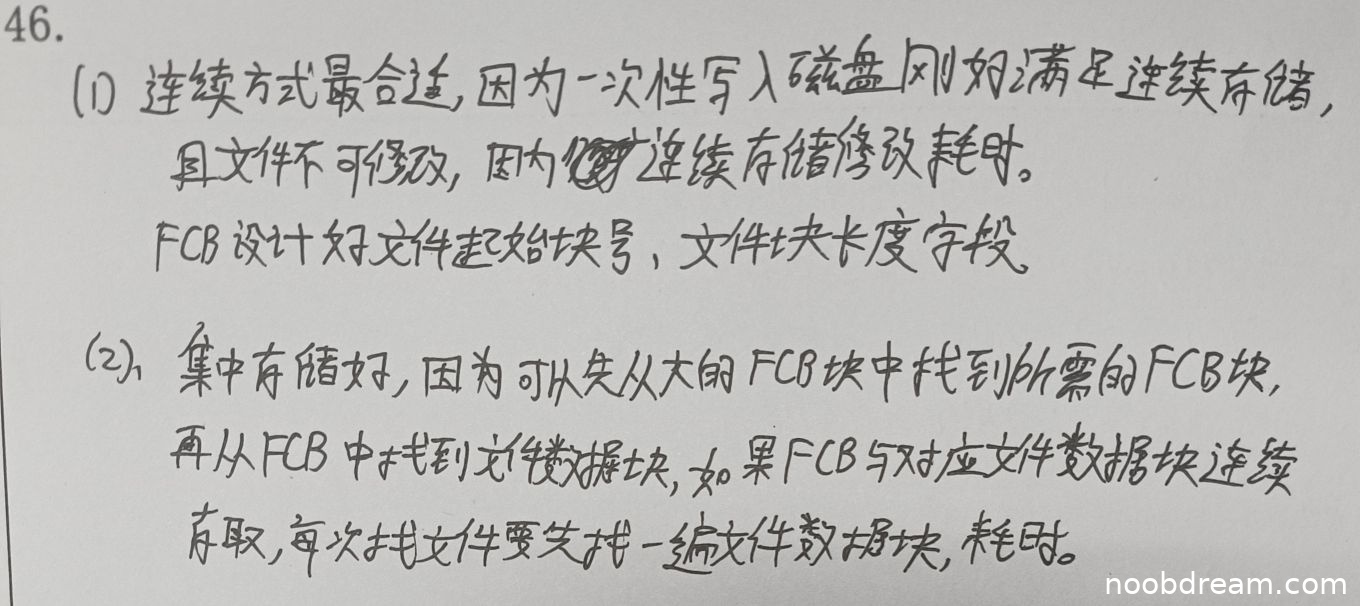 46.
(1) 连续方式最合适,因为一次性写入磁盘刚好满足连续存储,
且文件不可修改,因为连续存储修改耗时。
FCB设计好文件起始块号、文件块长度字段。
(2)、集中存储好,因为可以先从大的FCB块中找到所需的FCB块,
再从FCB中找到文件数据块,如果FCB与对应文件数据块连续
存取,每次找文件要先找一编文件数据块,耗时。
noobdream.com